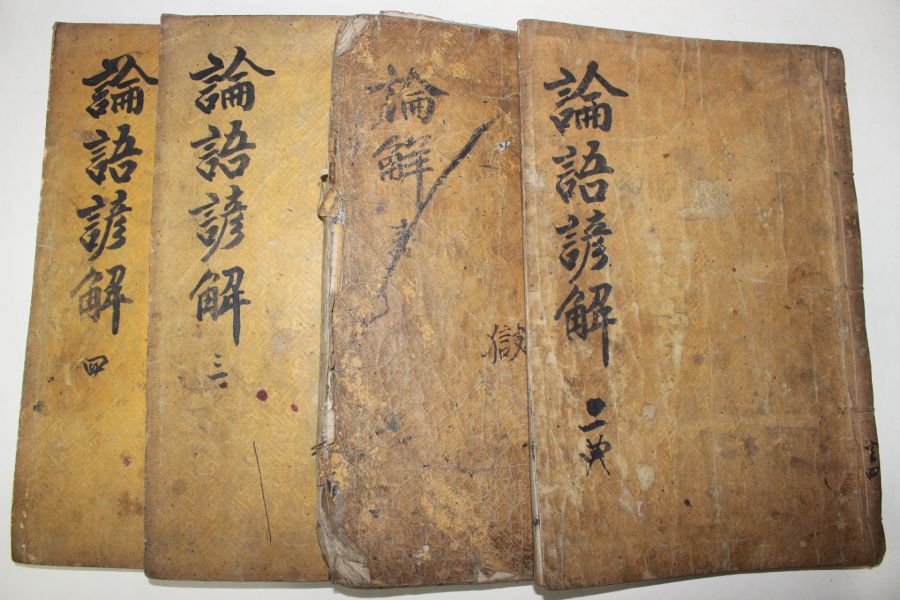 論語諺解 二典
全四
論解
論語諺解 三
論語諺解 四